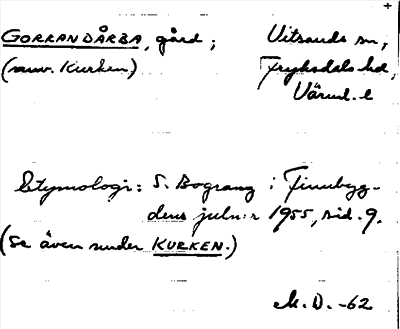 GORKANDÅRBA, gård; Vitsands sn,
(nuv. Kurken) Fryksdals hd,
Värml. l
Etymologi: S. Bograng i Finnbyg-
dens julnr 1955, sid. 9.
(Se även under KURKEN.)
M. D. -62